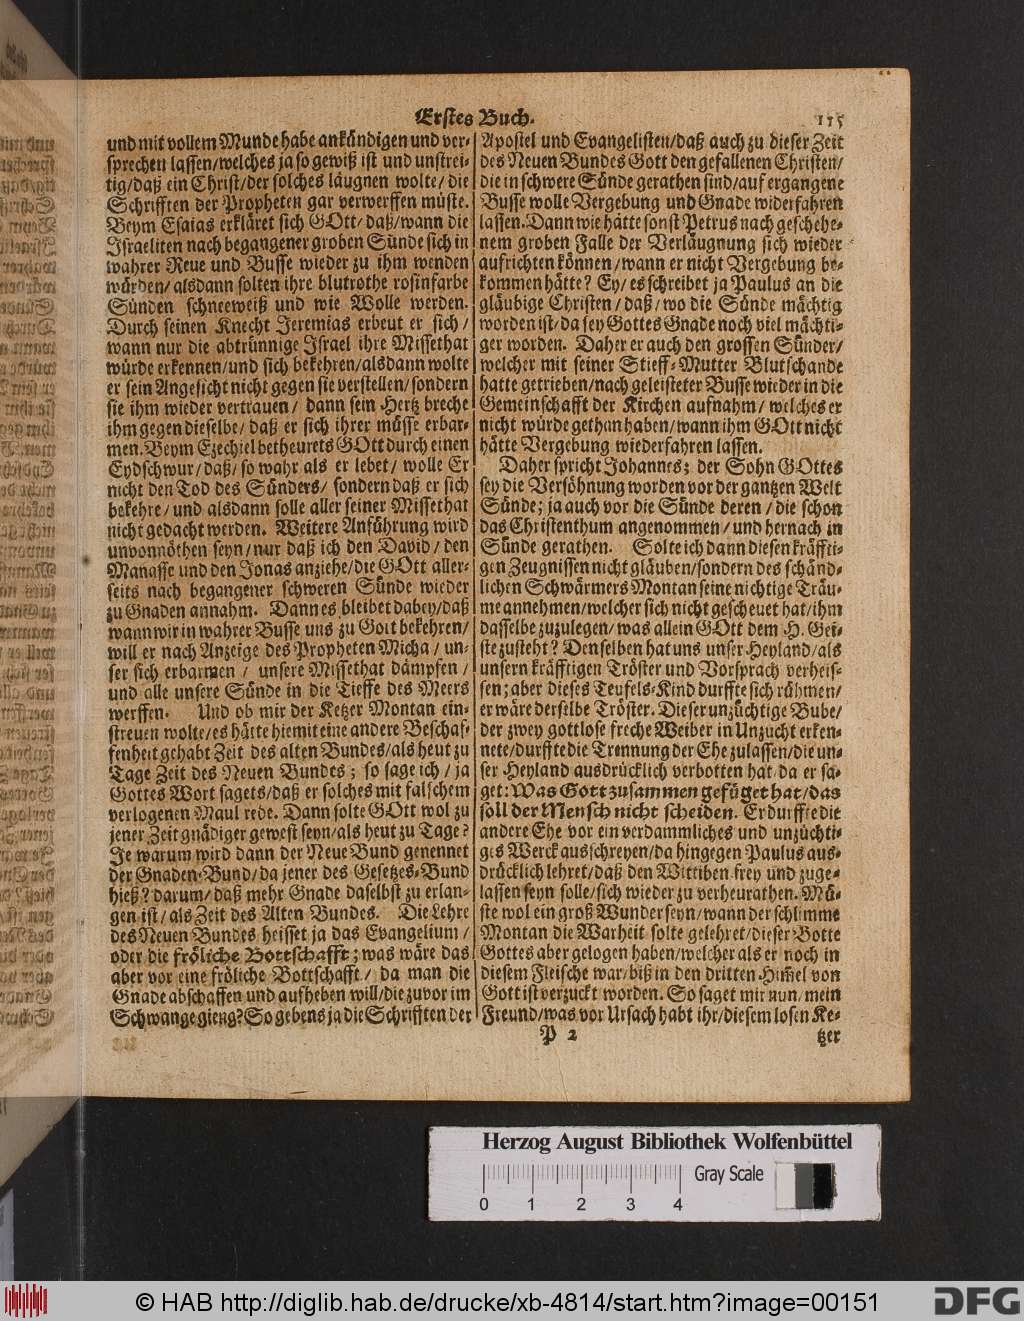 Erstes Buch. 115
und mit vollem Munde habe ankündigen und ver-
sprechen lassen/welches ja so gewiß ist und unstrei-
tig/daß ein Christ/der solches läugnen wolte/die
Schrifften der Propheten gar verwerffen müste.
Beym Esaias erkläret sich GOtt/daß/wann die
Israeliten nach begangener groben Sünde sich in
wahrer Reue und Busse wieder zu ihm wenden
würden/alsdann solten ihre blutrothe rosinfarbe
Sünden schneeweiß und wie Wolle werden.
Durch seinen Knecht Jeremias erbeut er sich/
wann nur die abtrünnige Israel ihre Missethat
würde erkennen/und sich bekehren/alsdann wolte
er sein Angesicht nicht gegen sie verstellen/sondern
sie ihm wieder vertrauen/ dann sein Hertz breche
ihm gegen dieselbe/daß er sich ihrer müsse erbar-
men. Beym Ezechiel betheurets GOtt durch einen
Eydschwur/daß/so wahr als er lebet/ wolle Er
nicht den Tod des Sünders/ sondern daß er sich
bekehre/und alsdann solle aller seiner Missethat
nicht gedacht werden. Weitere Anführung wird
unvonnöthen seyn/nur daß ich den David/den
Manasse und den Jonas anziehe/die GOtt aller-
seits nach begangener schweren Sünde wieder
zu Gnaden annahm. Dann es bleibet dabey/daß
wann wir in wahrer Busse uns zu Gott bekehren/
will er nach Anzeige des Propheten Micha/ un-
ser sich erbarmen/ unsere Missethat dämpfen/
und alle unsere Sünde in die Tieffe des Meers
werffen. Und ob mir der Ketzer Montan ein-
streuen wolte/es hätte hiemit eine andere Beschaf-
fenheit gehabt Zeit des alten Bundes/als heut zu
Tage Zeit des Neuen Bundes; so sage ich/ja
Gottes Wort sagets/daß er solches mit falschem
verlogenen Maul rede. Dann solte GOtt wol zu
jener Zeit gnädiger gewest seyn/als heut zu Tage?
Je warum wird dann der Neue Bund genennet
der Gnaden-Bund/da jener des Gesetzes-Bund
hieß? darum/daß mehr Gnade daselbst zu erlan-
gen ist/als Zeit des Alten Bundes. Die Lehre
des Neuen Bundes heisset ja das Evangelium/
oder die fröliche Bottschafft; was wäre das
aber vor eine fröliche Bottschafft/ da man die
Gnade abschaffen und aufheben will/die zuvor im
Schwange gieng? So gebens ja die Schrifften der
Apostel und Evangelisten/daß auch zu dieser Zeit
des Neuen Bundes Gott den gefallenen Christen/
die in schwere Sünde gerathen sind/auf ergangene
Busse wolle Vergebung und Gnade widerfahren
lassen. Dann wie hätte sonst Petrus nach geschehe-
nem groben Falle der Verläugnung sich wieder
aufrichten können/wann er nicht Vergebung be-
kommen hätte? Ey/es schreibet ja Paulus an die
gläubige Christen/daß/wo die Sünde mächtig
worden ist/da sey Gottes Gnade noch viel mächti-
ger worden. Daher er auch den grossen Sünder/
welcher mit seiner Stieff-Mutter Blutschande
hatte getrieben/nach geleisteter Busse wieder in die
Gemeinschafft der Kirchen aufnahm/welches er
nicht würde gethan haben/wann ihm GOtt nicht
hätte Vergebung wiederfahren lassen.
Daher spricht Johannes; der Sohn GOttes
sey die Versöhnung worden vor der gantzen Welt
Sünde; ja auch vor die Sünde deren/die schon
das Christenthum angenommen/und hernach in
Sünde gerathen. Solte ich dann diesen kräffti-
gen Zeugnissen nicht gläuben/sondern des schänd-
lichen Schwärmers Montan seine nichtige Träu-
me annehmen/welcher sich nicht gescheuet hat/ihm
dasselbe zuzulegen/was allein GOtt dem H. Gei-
ste zusteht? Denselben hat uns unser Heyland/als
unsern kräfftigen Tröster und Vorsprach verheis-
sen; aber dieses Teufels-Kind durffte sich rühmen/
er wäre derselbe Tröster. Dieser unzüchtige Bube/
der zwey gottlose freche Weiber in Unzucht erken-
nete/durffte die Trennung der Ehe zulassen/die un-
ser Heyland ausdrücklich verbotten hat da er sa-
get: Was Gott zusammen gefüget hat/das
soll der Mensch nicht scheiden. Er durffte die
andere Ehe vor ein verdammliches und unzüchti-
ges Werck ausschreyen/da hingegen Paulus aus-
drücklich lehret/daß den Wittiben frey und zuge-
lassen seyn solle/sich wieder zu verheurathen. Mü-
ste wol ein groß Wunder seyn/wann der schlimme
Montan die Warheit solte gelehret/dieser Botte
Gottes aber gelogen haben/welcher als er noch in
diesem Fleische war/biß in den dritten Him̃el von
Gott ist verzuckt worden. So saget mir nun/mein
Freund/was vor Ursach habt ihr/diesem losen Ke-
P 2 tzer
Herzog August Bibliothek Wolfenbüttel
Gray Scale
0 1 2 3 4
© HAB http://diglib.hab.de/drucke/xb-4814/start.htm?image=00151
DFG